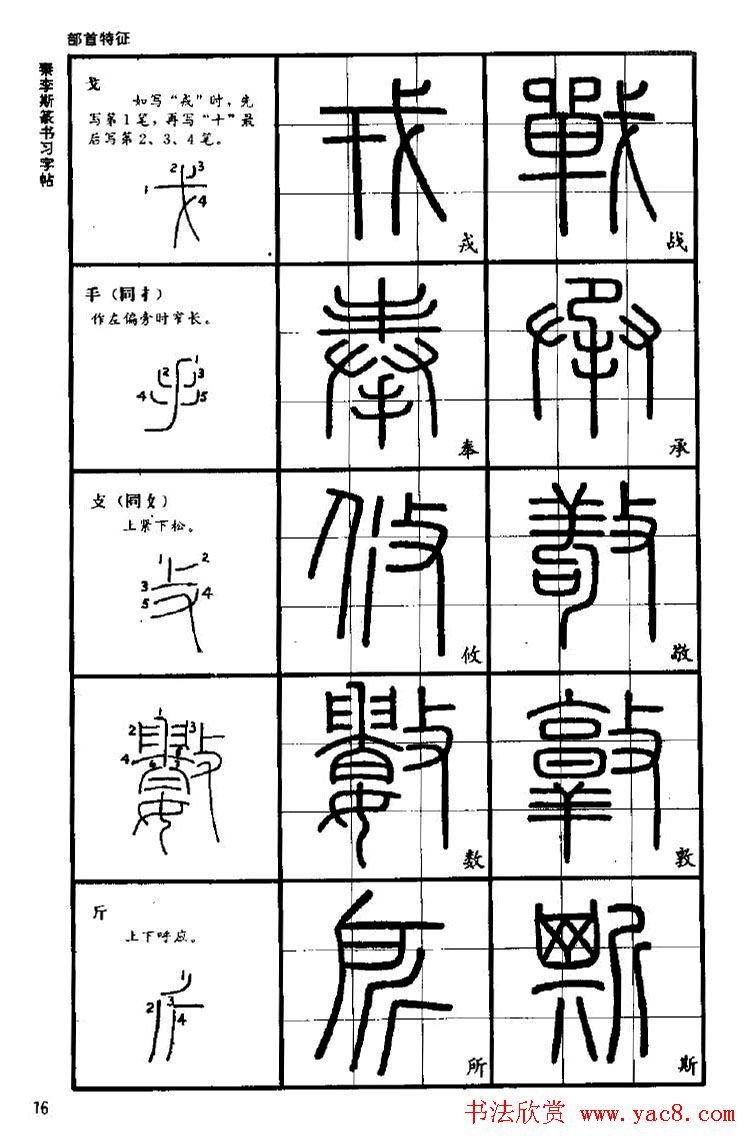 部首特征
秦李斯篆书习字帖
戈
如写“戎”时，先
写第1笔，再写“十”最
后写第2、3、4笔。
2 3
1
4
戎
战
手（同扌）
作左偏旁时窄长。
1
2 3
4 5
奉
承
攴（同攵）
上紧下松。
1 2
3 4
5
攸
敬
1
2 3
4
数
敦
斤
上下呼应。
1
2 3
4
所
斯
16
书法欣赏 www.yac8.com